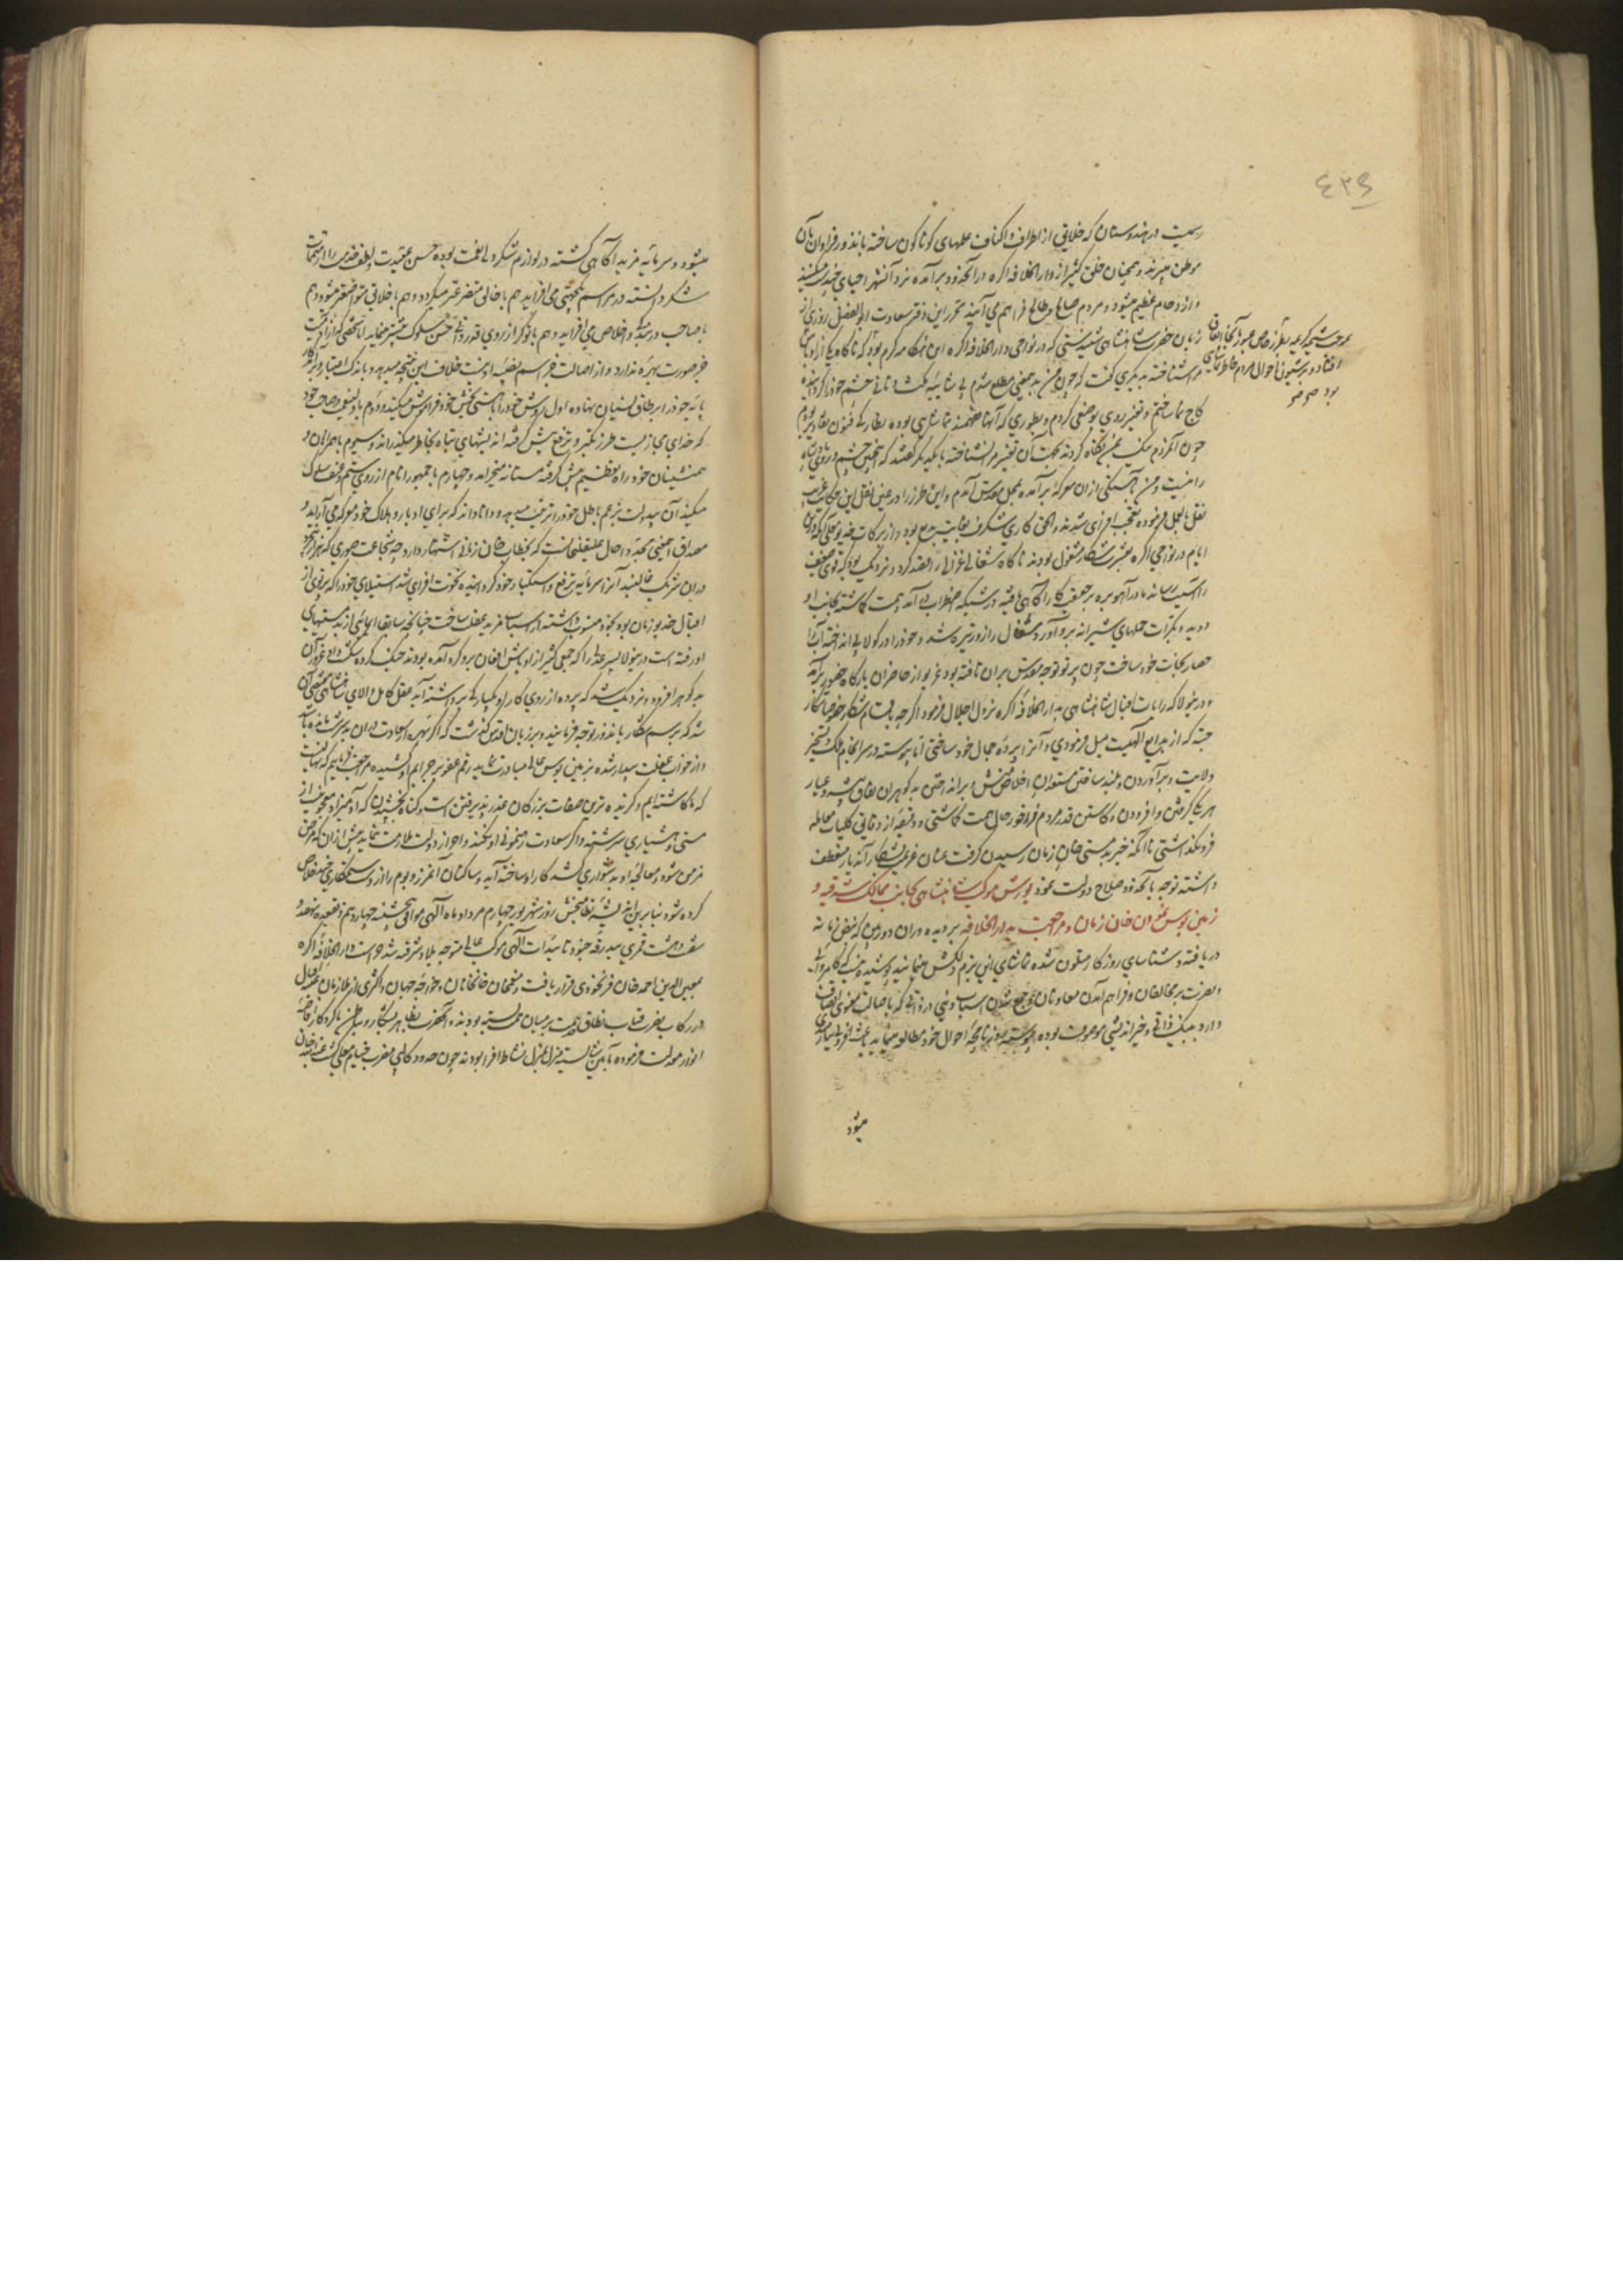 ٤٢٩
رسمیت در هندوستان که خلایق از اطراف و اکناف علمهای کوناکون ساخته با نذور فراوان بان
موطن میبرند و همچنان خلق کثیر از دار الخلافه اکره در آنحدود برآمده نزد آتشها احیای شب میکنند
و ازدحام عظیم میشود و مردم صالح و طالح فراهم می آیند محرر این دفتر سعادت ابو الفضل روزی از
زبان حضرت شاهنشاهی شنید شبی که در نواحی دار الخلافه اکره این هنکامه کرم بود که ناکاه یکی از اوباش
مرا شناخته بدیکری کفت که چون من بدین معنی مطلع شدم بی شایبه مکث و تانی چشم خود را کردانیده
کاج نما ساختم و تغییر روی بوضعی کردم و بطوری که آنها نفهمند تماشاهی بوده نظارکی فنون تقادیر بودم
چون آنمردم نیک بمن نکاه کردند بجهت آن تغییر مرا نشناخته با یکدیکر کفتند که اینچنین چشم و روی پادشاه
را نیست و من آهستکی از ان معرکه برآمده بمحل مقدس آمدم و این طرز را در عین نقل این حکایت غریب
نقل بالفعل فرموده تعجب افزای شدند و الحق کاری شکرف بغایت بدیع بود و از برکات خدیو معلی آنکه درین
ایام در نواحی اکره بعشرت شکار مشغول بودند ناکاه شغالی غزالی را قصد کرد و نزدیک بود که قوی ضعیف
را آسیب رساند مادر آهو بره بر حقیقت کار آکاهی یافته در شبکه اضطراب در آمد همت کاشته بجانب او
دوید و بکرات حملهای شیرانه برو آورد و شغال را زور تیره شد و خود را در کولابی انداخته آن را
حصار نجات خود ساخت چون پرتو توجه مقدس بران تافته بود غریو از حاضران بارکاه حضور برآمد
و درینولا که رایات اقبال شاهنشاهی بدار الخلافه اکره نزول اجلال فرمود اکرچه باقسام شکار خصوصا شکار
چیته که از بدایع الهیست میل فرمودی و آنرا پرده جمال خود ساختی اما پیوسته در سرانجام ملک و تسخیر
ولایت و برآوردن و بلند ساختن مستعدان اخلاص منش و برانداختن بدکوهران نفاق پیشه و عیار
هر یک کرفتن و افزودن و کاستن قدر مردم فراخور حال همت کاشتی و دقیقه از دقایق کلیات معامله
فرونکذاشتی تا آنکه خبر بدمستی خان زمان رسیدن کرفت عنان عزیمت شکار آن دیار منعطف
داشته توجه بآنحدود صلاح دولت نمود یورش موکب شاهنشاهی بجانب ممالک شرقیه و
زمین بوس نمودن خان زمان و مراجعت بدار الخلافه بر دیده وران دوربین که نبض زمانه
دریافته و شناسای روزکار بوقلمون شده تماشای این بزم دلکش مینمایند پوشیده نیست که کامروائی
و نصرت بر مخالفان و فراهم آمدن معاونان و جمع شدن اسباب دنیی در ذاتی که باصالت معنوی اتصاف
دارد بنیک ذاتی و خیر اندیشی موصوفست بوده پیوسته روزنامچه احوال خود مطالعه مینماید باعث افزونی بیداری
میشود
مرا حدیثه کریمه بطرز خاص عبور بآنجا اتفاق
افتاد و بر شیون احوال مردم خاطر تماشای
بود صح صح
میشود و سرمایه مزید آکاهی کشته در لوازم شکر ولی النعمت بوده حسن عقیدت و لطف خدمت را از متممات
شکر دانسته در مراسم یکجهتی می افزاید هم با خالق متضرعتر میکردد و هم با خلایق متواضعتر میشود هم
با صاحب در بندکی و اخلاص می افزاید و هم با نوکر از روی قدردانی حسن سلوک بیشتر مینماید اما شخصی که از آدمیت
خبر صورت بهره ندارد و از اصالت قراسم نصیبه اوست خلاف این نتیجه میدهد و باندک اعتبار و برآمد کار
پایه خود را بر طاق نسیان نهاده اول روش خود را با هستی بخش خود فراموش میکند و دوم با ولی نعمت و صاحب خود
که خدای مجازیست طرز تکبر و ترفع پیش کرفته اندیشهای تباه بخاطر میکذراند و سیوم با همرهان و
همنشینان خود راه تعظیم پیش کرفته مستانه میخرامد و چهارم با جمهور انام از روی ستم و عنف سلوک
میکند آن بیدولت بزعم باطل خود را ترتیب میدهد و دانا داند که برای ادبار و هلاک خود معرکه می آراید و
مصداق این معنی مجددا حال علیقلیست که بخطاب خان زمانی اشتهار دارد چه شجاعت صوری که هزاران هزار
دران شریک غالبند آنرا سرمایه ترفع و استکبار خود کردانیده نخوت افزای شد استیلای خود را که پرتوی از
اقبال خدیو زمان بود بخود منسوب داشته از اسباب مزید غفلت ساخت چنانچه سابقا ایمائی از بدمستیهای
او رفته است درینولا پسر عدلی را که جمعی کثیر از اوباش افغان برو کرد آمده بودند جنک کرده شکست داد غرور آن
بدکوهر افزود و نزدیک شد که پرده از روی کار او یکبارکی برداشته آید عقل کامل و الای شاهنشاهی مقتضی آن
شد که برسم شکار بانحدود توجه فرمایند و بر زبان اقدس کذشت که اکر شهره سعادت دران بدسرشت مانده باشد
و از خواب غفلت بیدار شده بزمین بوس عالی مبادرت نماید رقم عفو بر جرایم او کشیده مراجعت فرمایم که نهالیست
که ما کاشته ایم و کزیده ترین صفات بزرکان عذر پذیرفتن است و کناه بخشیدن که آدمیزاد معجونیست از
مستی و هشیاری سرشته و اکر سعادت رهنمونی او نکند و احراز دولت ملازمت ننماید پیش ازان که مرض
مزمن شود و معالجه او بدشواری کشد کار او ساخته آید و ساکنان آنمرز و بوم را از دست ستمکاری خبر خلاص
کرده شود بنابرین اندیشه نظام بخش روز شهریور چهارم مرداد ماه آلهی موافق پنجشنبه چهاردهم ذیقعده نهصد و
شصت و هشت قمری ببدرقه جنود تائیدات آلهی موکب عالی متوجه بلاد شرقیه شد حراست دار الخلافه اکره
بمعین الدین احمد خان فرنخودی قرار یافت و منعم خان خانخانان و خواجه جهان و اکثری از ملازمان عتبه اقبال
در رکاب نصرت قباب نطاق همت بر میان خدمت بسته بودند و آنحضرت بظاهر بشکار و بباطن باکردکار افاضه
انوار معدلت فرموده بآیین شایسته منزل بمنزل نشاط افزا بودند چون حدود کالپی مضرب خیام معلی کشت عبد الله خان